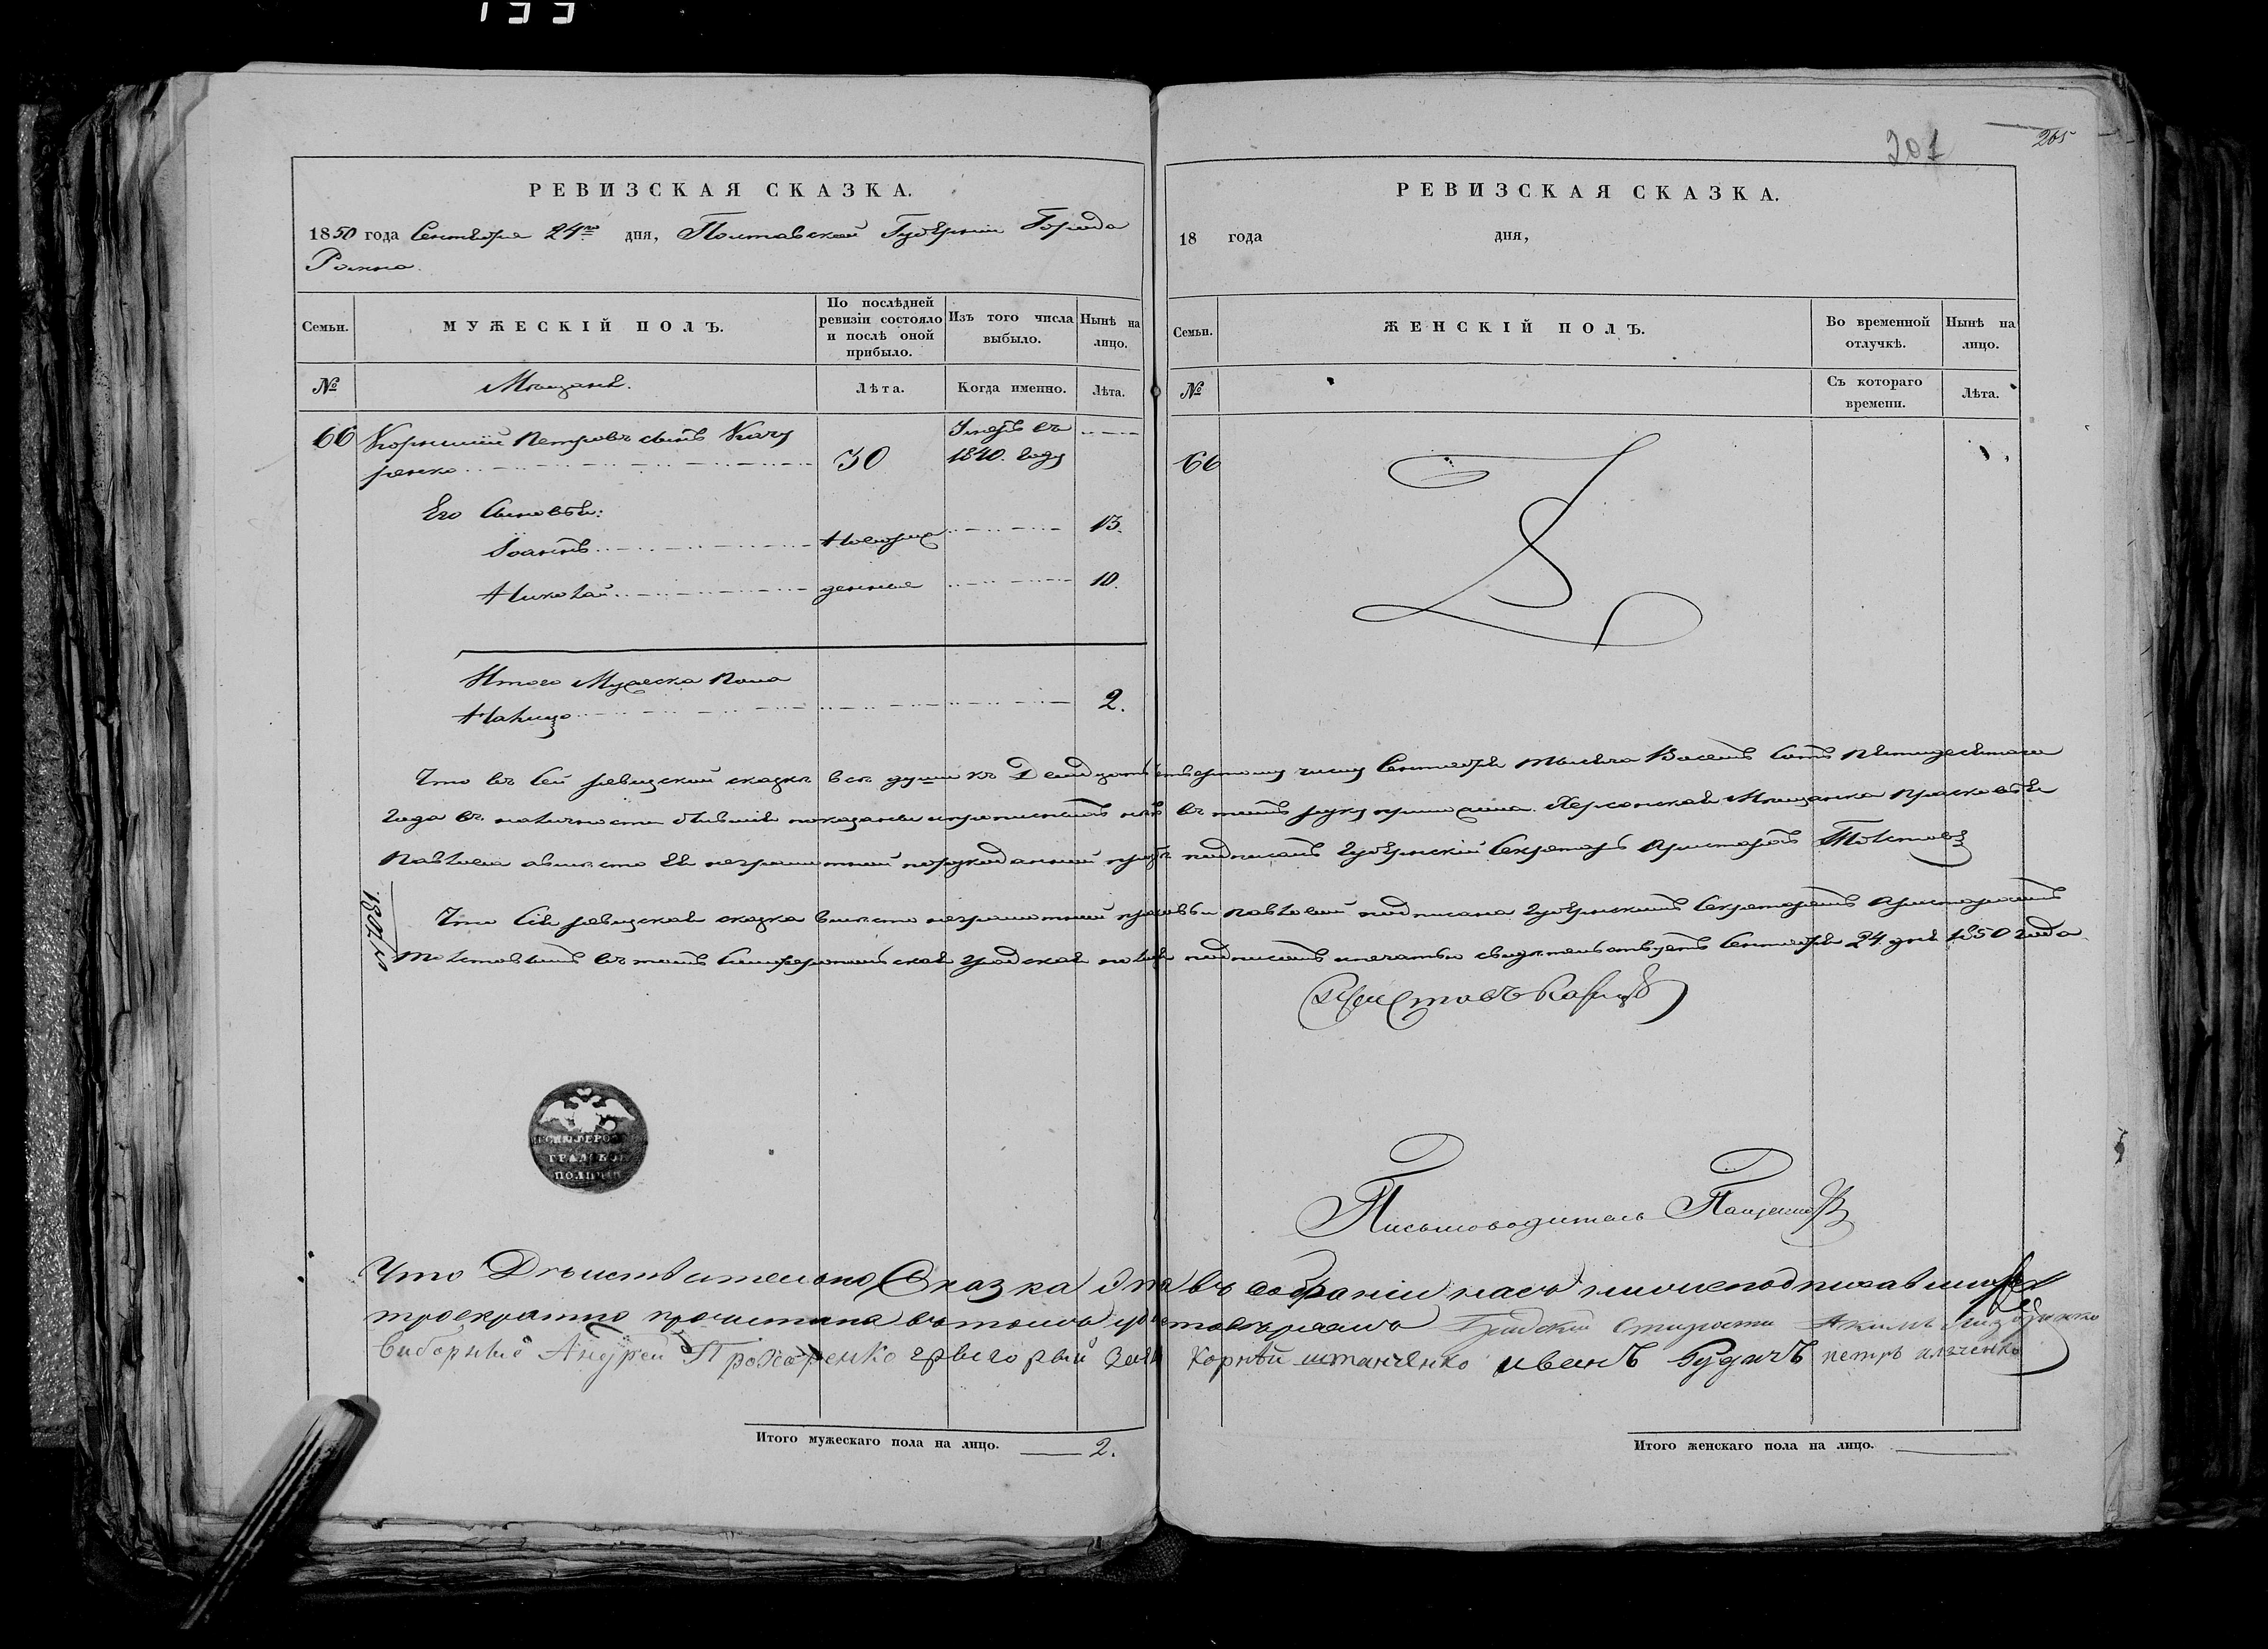 201
205
РЕВИЗСКАЯ СКАЗКА.
1850 года Сентября 24го дня, Полтавской Губернии Города
Ромна.
Семьи.
МУЖЕСКІЙ ПОЛЪ.
По послѣдней ревизіи состояло и послѣ оной прибыло.
Изъ того числа выбыло.
Нынѣ на лицо.
№
Мещане.
Лѣта.
Когда именно.
Лѣта.
66 Корнилий Петровъ сынъ Качу
ренко 30 1840. году
Его Сыновья:
Іоаннъ Новорож 13.
Николай денные 10.
Итого Мужеска Пола
Налицо 2.
РЕВИЗСКАЯ СКАЗКА.
18 года дня,
Семьи.
ЖЕНСКІЙ ПОЛЪ.
Во временной отлучкѣ.
Нынѣ на лицо.
№
Съ котораго времени.
Лѣта.
66
Что въ сей ревизской сказкѣ всѣ души къ Двадцать четвертому числу Сентября тысяча Восемь Сотъ Пятидесятаго
Года въ наличности бывшія показаны и прописныхъ нѣтъ въ томъ руку приложила Херсонская Мещанка Прасковья
Павлова а вмѣсто её неграмотной подписалъ Губернскій Секретарь Аристархъ Толстовъ
Что Сія ревизская сказка вмѣсто неграмотной Павловой подписана Губернскимъ Секретаремъ Аристархомъ
Толстовымъ въ томъ Симферопольская Градская полиція подписомъ и печатью свидѣтельствуетъ Сентября 24 дня 1850 года.
Приставъ
ГРАДСКОЙ
ПОЛИЦІИ
Письмоводитель
Что Дѣйствительно Сказка эта въ собраніи насъ нижеподписавшихся
троекратно прочитана въ томъ удостовѣряемъ Градскій Староста Акимъ
Виборные Андрей Корнѣй штанченко иванъ Будичъ петръ ильченко
Итого мужескаго пола на лицо. 2.
Итого женскаго пола на лицо.